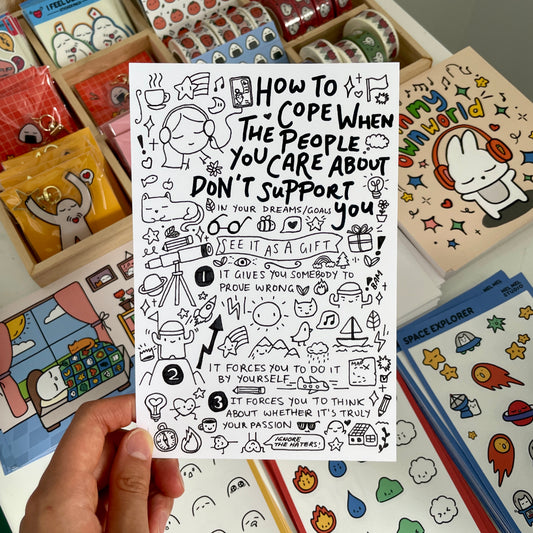 HOW TO
COPE WHEN
THE PEOPLE
YOU CARE ABOUT
DON'T SUPPORT
you
IN YOUR DREAMS/GOALS
SEE IT AS A GIFT
1 IT GIVES YOU SOMEBODY TO
PROVE WRONG
2 IT FORCES YOU TO DO IT
BY YOURSELF
3 IT FORCES YOU TO THINK
ABOUT WHETHER IT'S TRULY
YOUR PASSION
IGNORE
THE HATERS!
I FEEL
my
own world
SPACE EXPLORER
MEI MEI
STUDIO